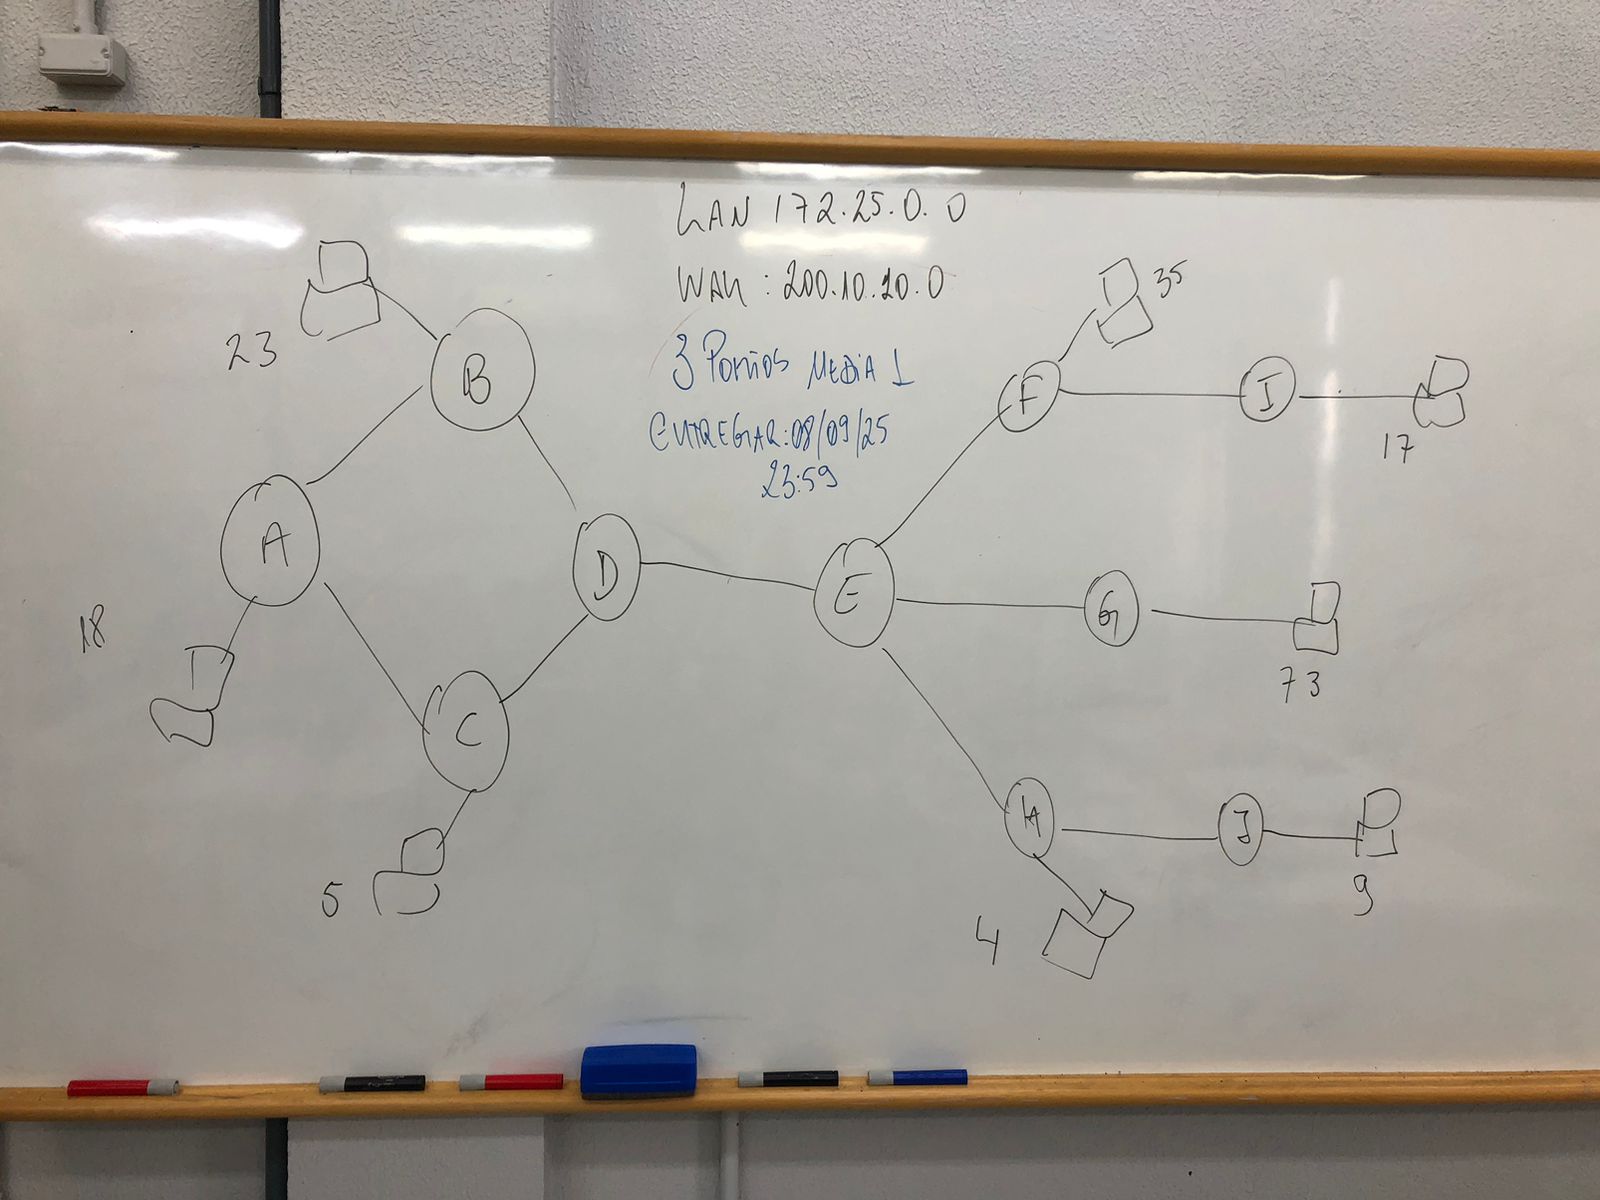 LAN 172.25.0.0
WAN : 200.10.10.0
3 Pontos MEDIA 1
ENTREGAR: 08/09/25
23:59
23
B
A
18
C
5
D
E
F
35
I
17
G
73
H
4
J
9